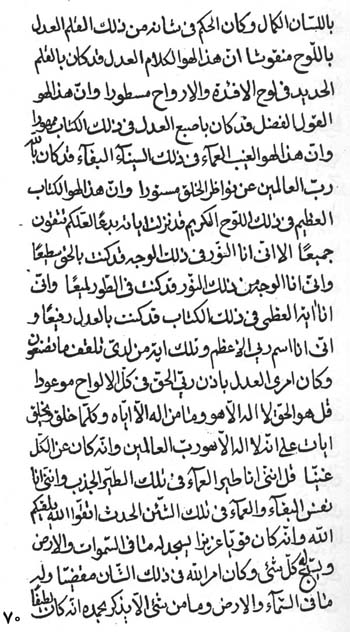 باللسان الكمال وكان الحكم فى شانه من ذلك القلم العدل
باللوح منقوشا ان هذا لهو الكلام العدل قد كان بالقلم
الحديد فى لوح الافئدة والارواح مسطورا وان هذا لهو
القول الفضل قد كان باصبع العدل فى ذلك الكتاب
وان هذا لهو الغيب العمآء فى ذلك السيناء البقآء قد كان بالله
رب العالمين عن نواظر الخلق مستورا وان هذا لهو الكتاب
العظيم فى ذلك اللوح الكريم قد نزلت اياته بديعا لعلكم تتقون
جميعا الا انى انا النور فى ذلك الوجه قد كنت بالحق سطيعا
وانى انا الوجه من ذلك النور قد كنت فى الطور لميعا وانى
انا اية العظمى فى ذلك الكتاب قد كنت بالعدل رفيعا و
انى انا اسم ربى الاعظم وتلك اية من لدى تلقف ما تصنعون
وكان امرى العدل باذن ربى الحق فى كل الالواح موعودا
قل هو الحق لا اله الا هو وما من اله الا اياه وكلما خلق ويخلق
ايات على انه لا اله الا هو رب العالمين وانه كان عن الكل
غنيا قل اننى انا طير العمآء فى تلك الطير الجذب واننى انا
نفس البقآء والعمآء فى تلك الحدث اتقوا الله
الله وانه كان قويا عزيزا يسجد له ما فى السموات والارض
كل شئ وكان امر الله فى ذلك الشان مقضيا وله
ما فى السمآء والارض وما من شئ الا يذكر بحمده انه كان
٧٠